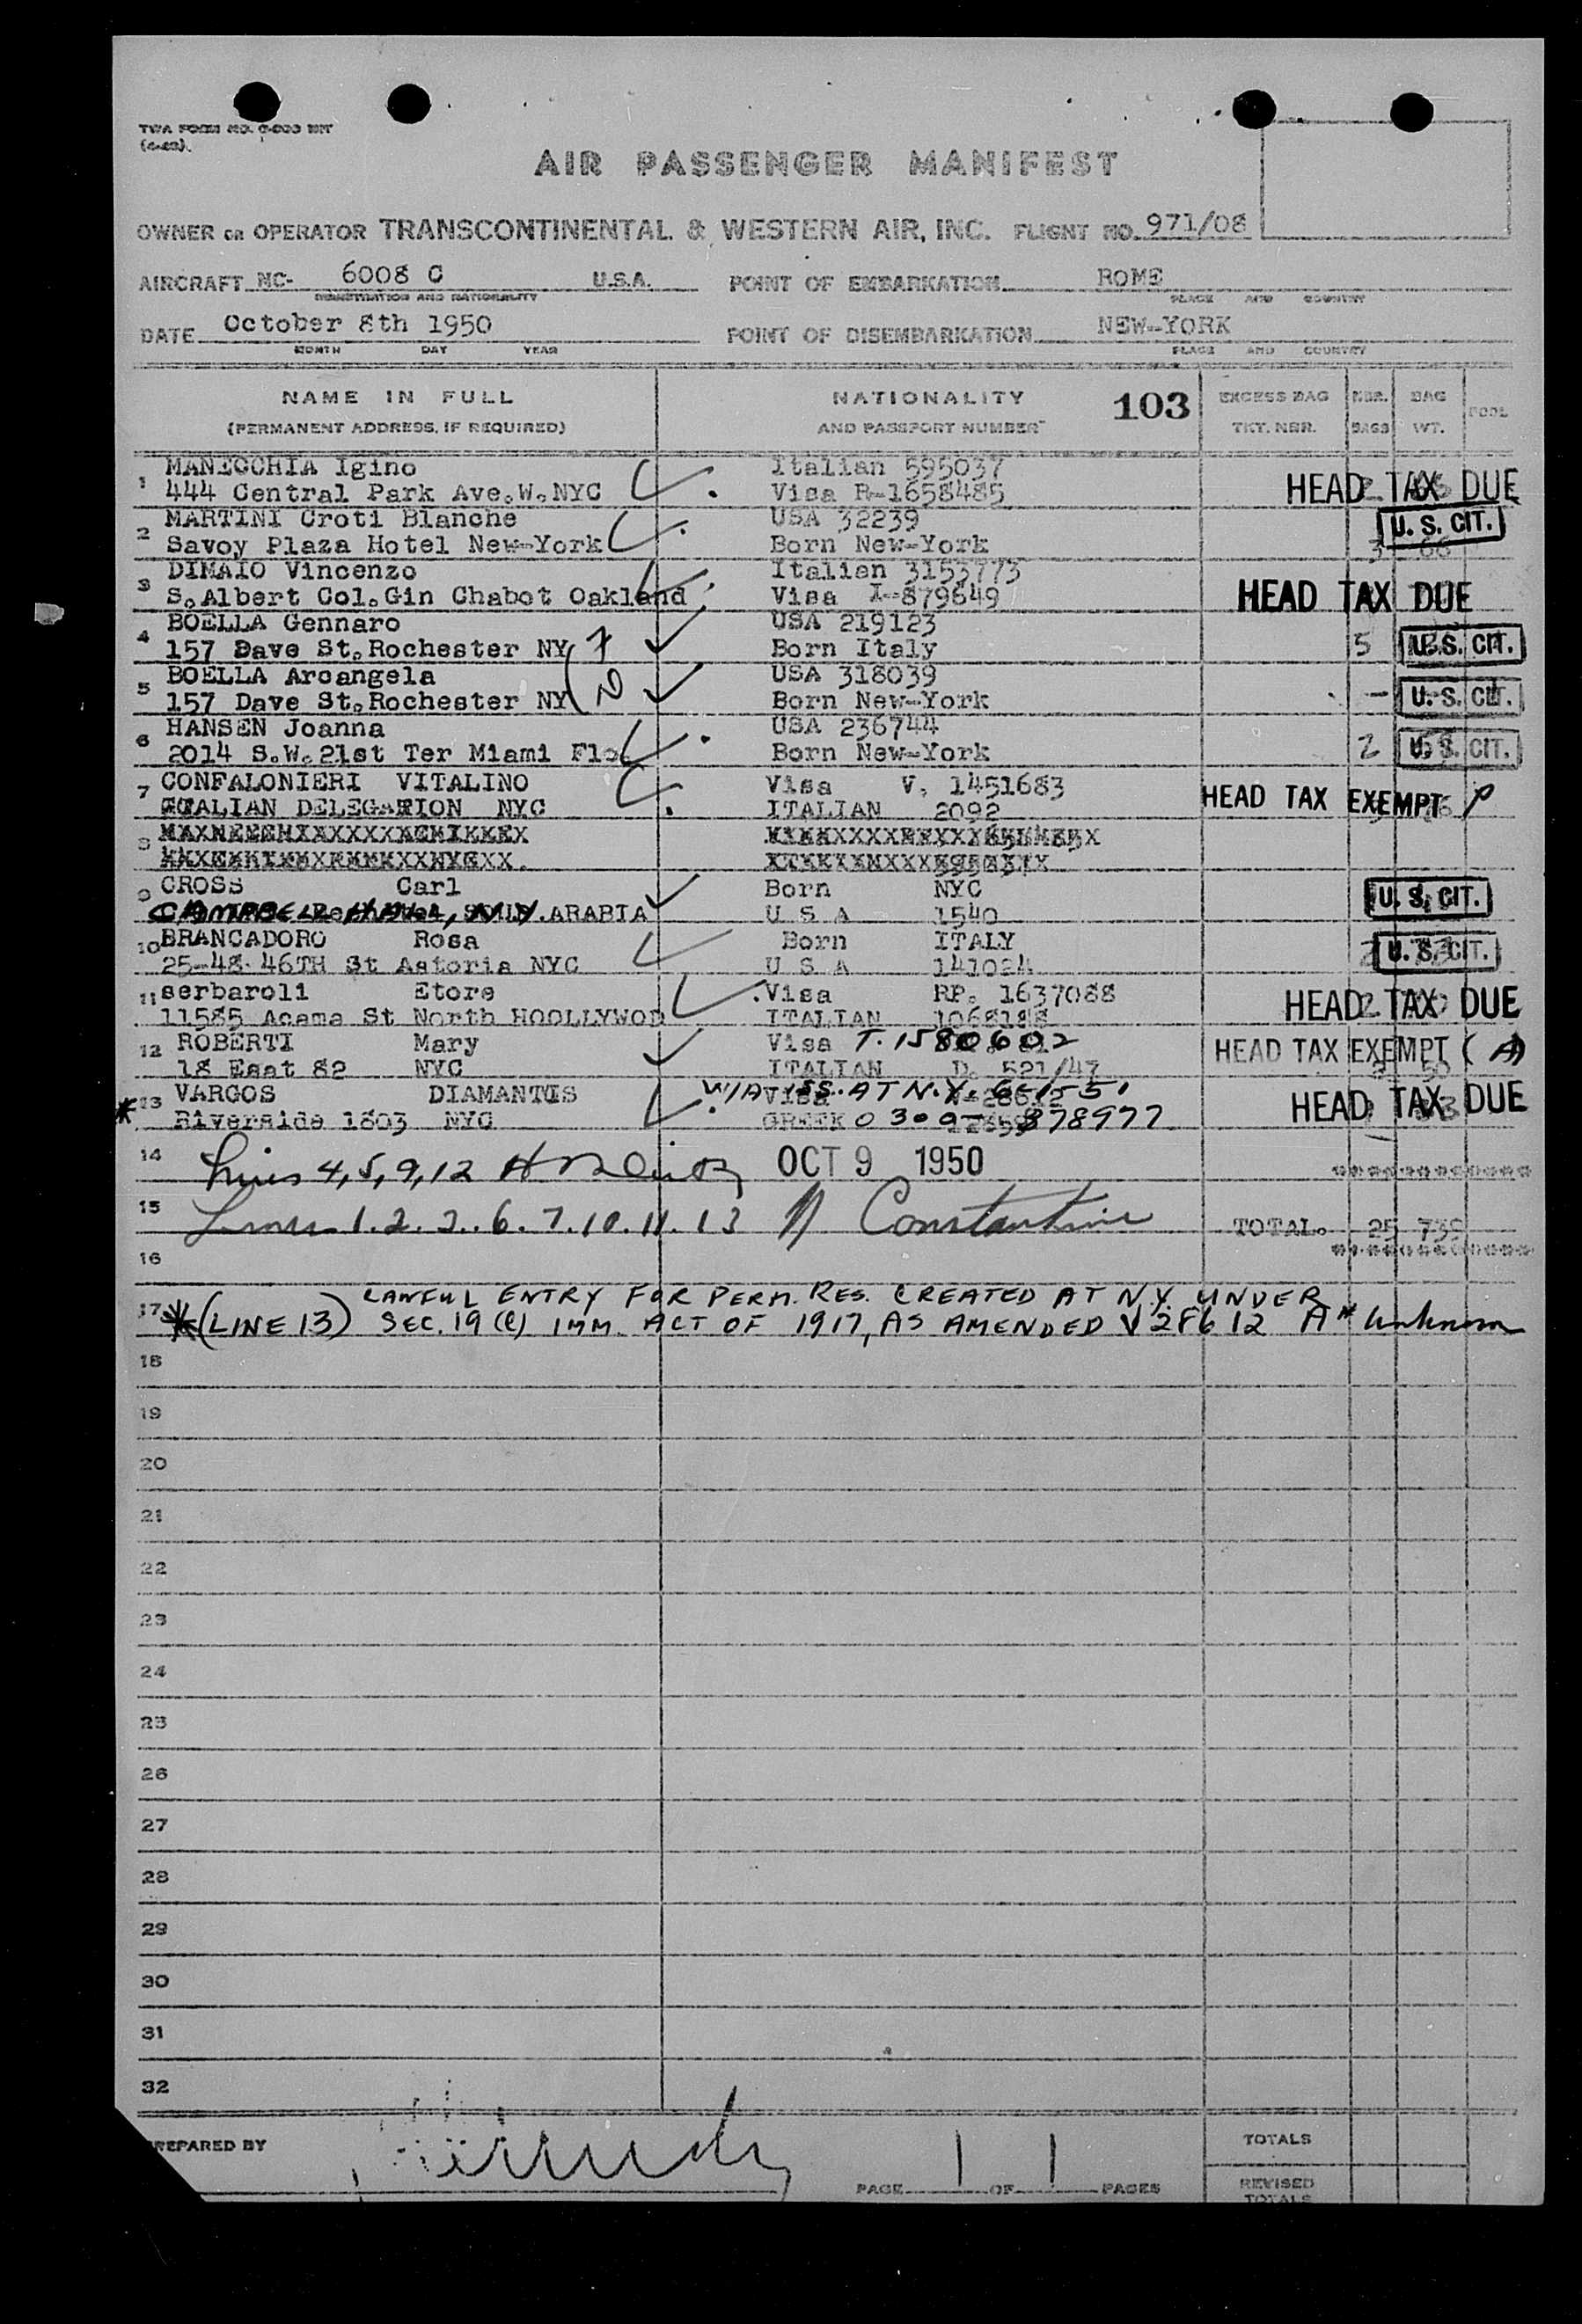 AIR PASSENGER MANIFEST
OWNER OR OPERATOR TRANSCONTINENTAL & WESTERN AIR, INC. FLIGHT NO. 971/08
AIRCRAFT NC- 6008 C U.S.A. POINT OF EMBARKATION ROME
REGISTRATION AND NATIONALITY PLACE AND COUNTRY
DATE October 8th 1950 POINT OF DISEMBARKATION NEW-YORK
MONTH DAY YEAR PLACE AND COUNTRY
NAME IN FULL NATIONALITY 103 EXCESS BAG NBR. BAG POOL
(PERMANENT ADDRESS, IF REQUIRED) AND PASSPORT NUMBER TKT. NBR. BAGS WT.
1 MANICCHIA Igino Italian 595037
444 Central Park Ave.W.NYC Visa R-1658485 HEAD TAX DUE
2 MARTINI Croti Blanche USA 32239 U. S. CIT.
Savoy Plaza Hotel New-York Born New-York
3 DIMAIO Vincenzo Italian 3153773
S.Albert Col.Gin Chabot Oakland Visa I-879649 HEAD TAX DUE
4 BOELLA Gennaro USA 219123
157 Dave St.Rochester NY Born Italy 5 U.S. CIT.
5 BOELLA Arcangela USA 318039
157 Dave St.Rochester NY Born New-York - U.S. CIT.
6 HANSEN Joanna USA 236744
2014 S.W.21st Ter Miami Flo Born New-York 2 U.S. CIT.
7 CONFALONIERI VITALINO Visa V. 1451683
ITALIAN DELEGATION NYC ITALIAN 2092 HEAD TAX EXEMPT P
8
9 CROSS Carl Born NYC U.S. CIT.
CAMPBELL HALL, N.Y. ARABIA U S A 1540
10 BRANCADORO Rosa Born ITALY U.S. CIT.
25-48 46TH St Astoria NYC U S A 141024
11 serbaroli Etore Visa RP. 1637088 HEAD TAX DUE
11585 Acama St North HOOLLYWOD ITALIAN 1068188
12 ROBERTI Mary Visa T. 1580602 HEAD TAX EXEMPT (A)
18 East 82 NYC ITALIAN D. 521/47
*13 VARGOS DIAMANTIS AT N.Y. 6-1-51 HEAD TAX DUE
Riverside 1803 NYC GREEK 0300- 378977
14 Lines 4, 5, 9, 12 OCT 9 1950
15 Lines 1. 2. 3. 6. 7. 10. 11. 13 Constantine TOTAL. 25 739
16
LAWFUL ENTRY FOR PERM. RES. CREATED AT N.Y. UNDER
17 *(LINE 13) SEC. 19 (C) IMM. ACT OF 1917, AS AMENDED V 28612 A# Unknown
18
19
20
21
22
23
24
25
26
27
28
29
30
31
32
PREPARED BY TOTALS
PAGE 1 OF 1 PAGES REVISED
TOTALS